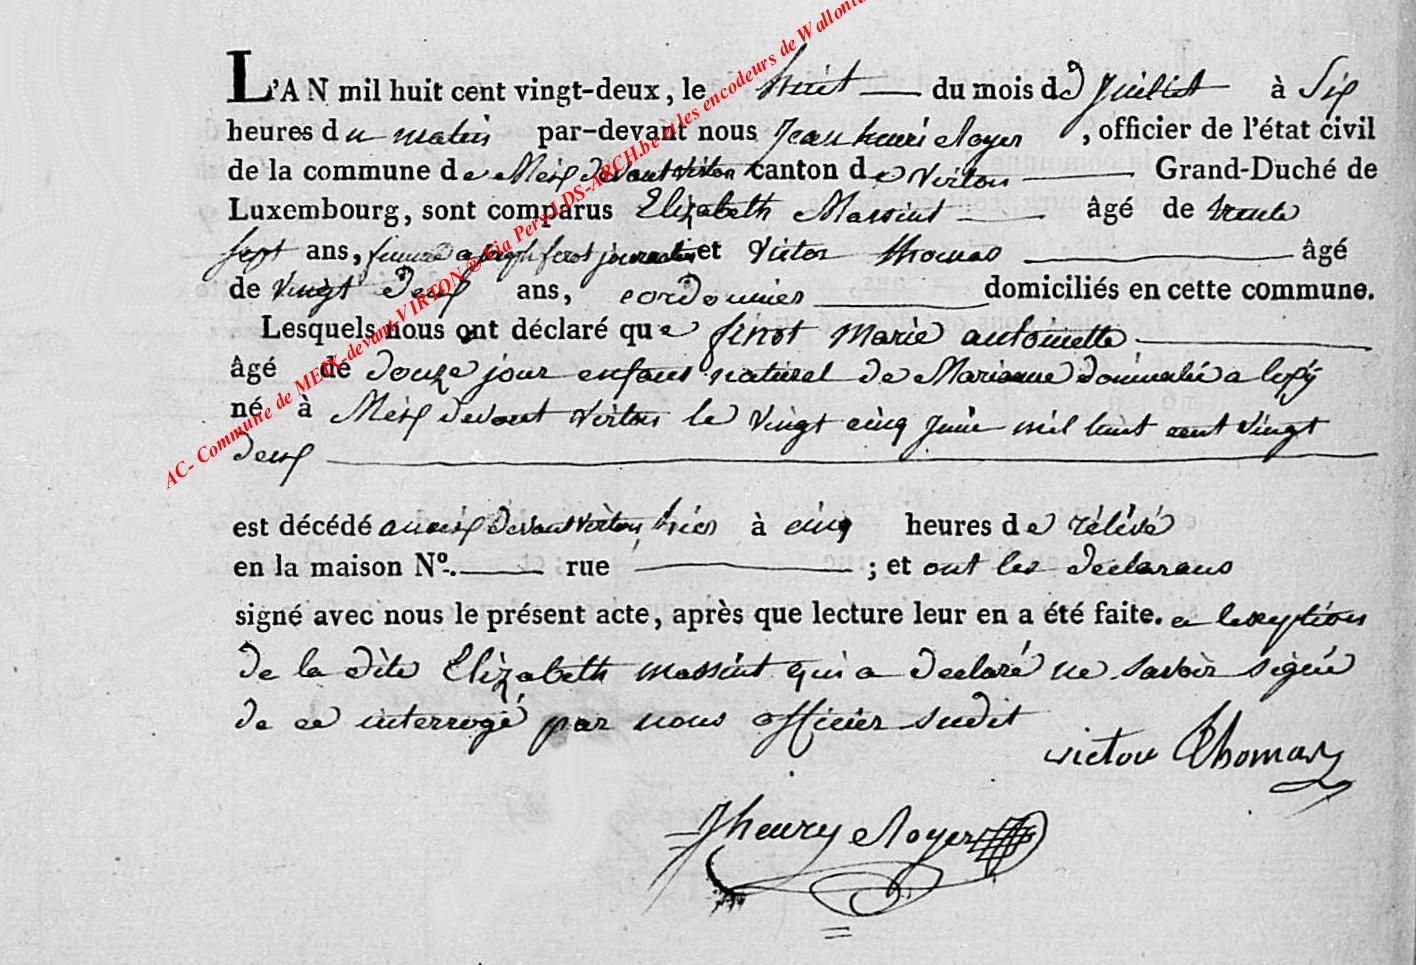 L'AN mil huit cent vingt-deux, le huit du mois de Juillet à Six
heures du matin par-devant nous Jean henri Noyer, officier de l'état civil
de la commune de Meix devant virton canton de virton Grand-Duché de
Luxembourg, sont comparus Elizabeth Massint âgé de trente
sept ans, femme a joseph ferot journalier et Victor thomas âgé
de vingt deux ans, cordonnier domiciliés en cette commune.
Lesquels nous ont déclaré que finot marie antoinette
âgé de douze jour enfans naturel de Marianne domicilié a
né à Meix devant virton le vingt cinq juin mil huit cent vingt
deux
est décédé a meix devant virton hier à cinq heures de rélévé
en la maison N°. rue ; et ont les declarans
signé avec nous le présent acte, après que lecture leur en a été faite. a lexeption
de la dite Elizabeth massint qui a declaré ne savoir signé
de ce interrogé par nous officier sudit
victor Thomas
Jhenry Noyer
AC- Commune de MEIX-devant-VIRTON ® Via Pers-LDS-ARCH.be et les encodeurs de Wallonie